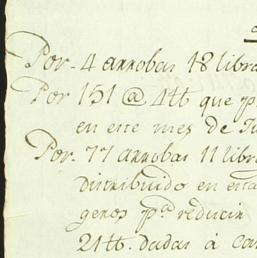 Por. 4 arrobas 18 libra
Por 151 @ 4 tt que pr
en este mes de Ju
Por. 77 arrobas 11 libra
distribuido en esta
geros pa reducir
21 tt. dadas à Ca